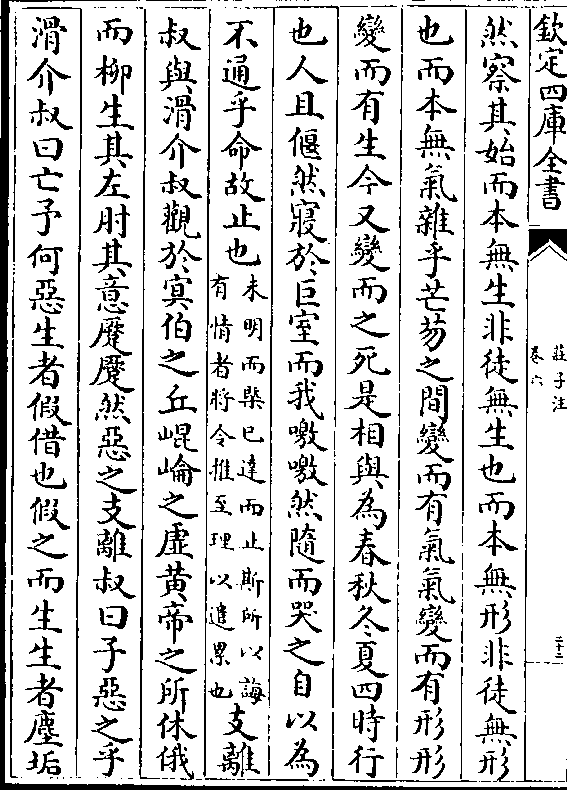 欽定四庫全書
莊子注
卷六
二十二
然察其始而本無生非徒無生也而本無形非徒無形
也而本無氣雜乎芒芴之間變而有氣氣變而有形形
變而有生今又變而之死是相與為春秋冬夏四時行
也人且偃然寢於巨室而我噭噭然隨而哭之自以為
不通乎命故止也未明而槩已達而止斯所以誨有情者將令推至理以遣累也支離
叔與滑介叔觀於冥伯之丘崐崘之虛黄帝之所休俄
而柳生其左肘其意蹷蹷然惡之支離叔曰子惡之乎
滑介叔曰亡予何惡生者假借也假之而生生者塵垢